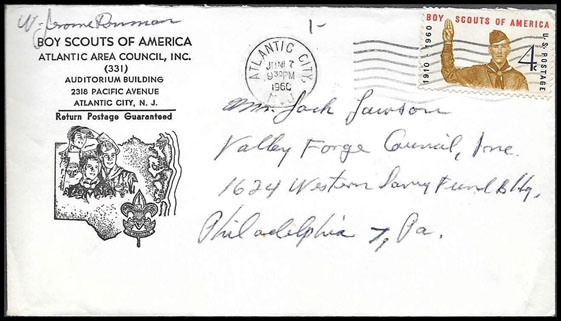 W. Jerome
1-
BOY SCOUTS OF AMERICA
ATLANTIC AREA COUNCIL, INC.
(331)
AUDITORIUM BUILDING
2318 PACIFIC AVENUE
ATLANTIC CITY, N. J.
Return Postage Guaranteed
ATLANTIC CITY,
JUN 7
930PM
1960
N.J.
BOY SCOUTS OF AMERICA
1910 1960
4¢
U.S. POSTAGE
Mr. Jack Lawson
Valley Forge Council, Inc.
1624 Western Savg Fund Bldg,
Philadelphia 7, Pa.